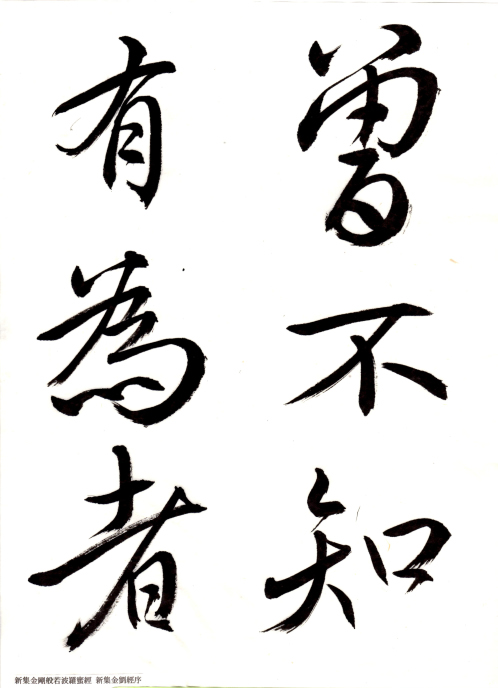 曽不知
有為者
新集金剛般若波羅蜜經 新集金剛經序